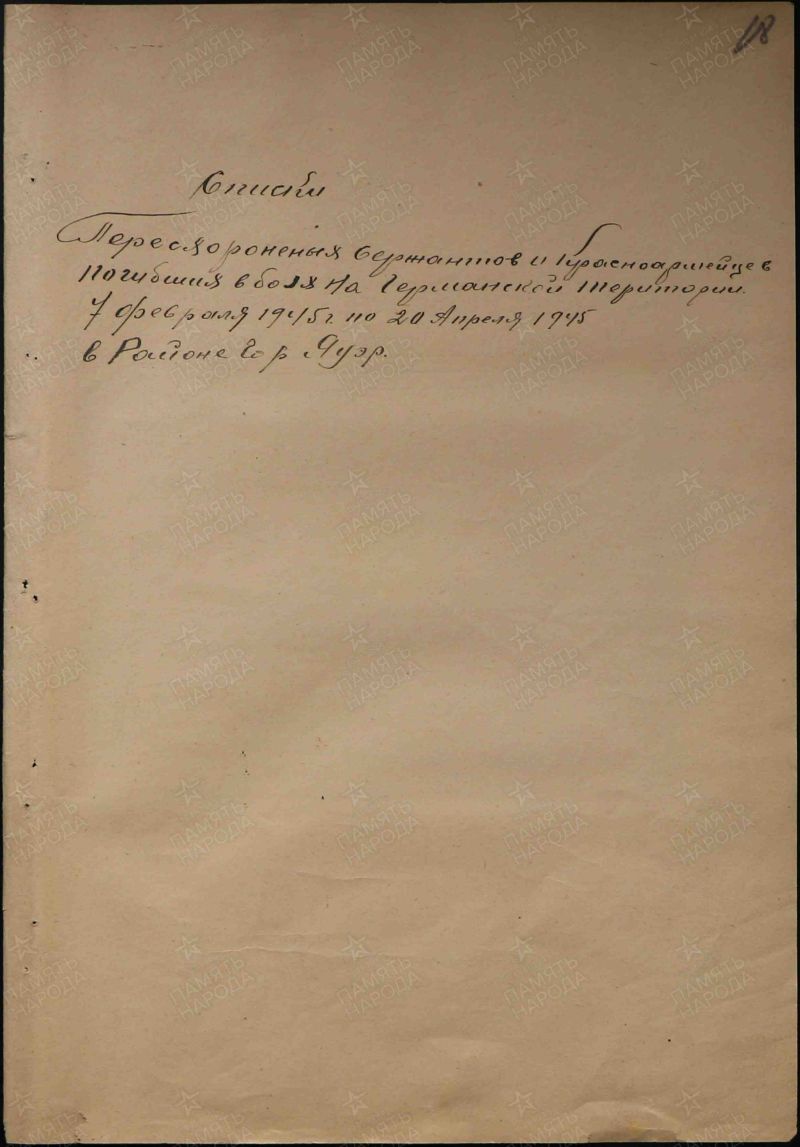 18
Списки
Пересхороненых Сержантов и Красноармейцев
Погибших в боях На Германской територии.
7 февраля 1945г. по 20 Апреля 1945
в Районе Гор Яуэр.